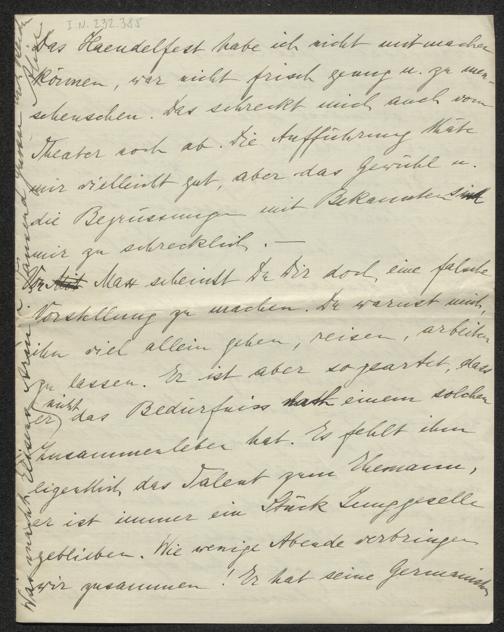 I.N. 232.385
Das Haendelfest habe ich nicht mitmachen
können, war nicht frisch genug u. zu men-
schenscheu. Das schreckt mich auch vom
Theater noch ab. Die Aufführung thäte
mir vielleicht gut, aber das Gewühl u.
die Begrüssungen mit Bekannten sind
mir zu schrecklich. —
Von Max scheinst Du Dir doch eine falsche
Vorstellung zu machen. Du warnst mich,
ihn viel allein gehen, reisen, arbeiten
zu lassen. Er ist aber so geartet, dass
er nicht das Bedürfniss nach einem solchen
Zusammenleben hat. Es fehlt ihm
eigentlich das Talent zum Ehemann,
er ist immer ein Stück Junggeselle
geblieben. Wie wenige Abende verbringen
wir zusammen! Er hat seine Germanisten
Was macht